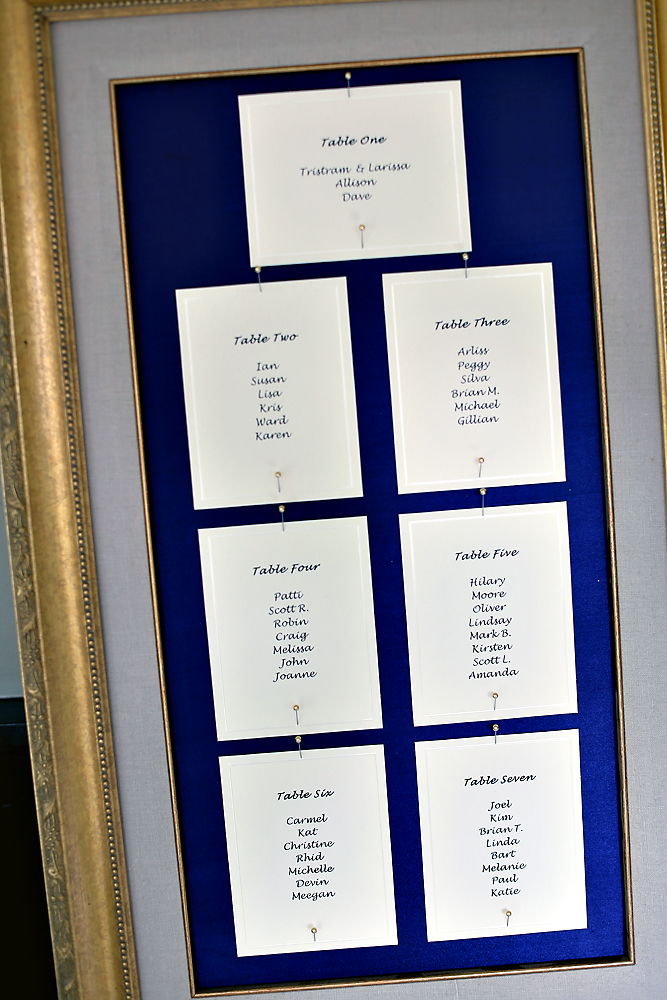 Table One
Tristram & Larissa
Allison
Dave
Table Two
Ian
Susan
Lisa
Kris
Ward
Karen
Table Three
Arliss
Peggy
Silva
Brian M.
Michael
Gillian
Table Four
Patti
Scott R.
Robin
Craig
Melissa
John
Joanne
Table Five
Hilary
Moore
Oliver
Lindsay
Mark B.
Kirsten
Scott L.
Amanda
Table Six
Carmel
Kat
Christine
Rhid
Michelle
Devin
Meegan
Table Seven
Joel
Kim
Brian T.
Linda
Bart
Melanie
Paul
Katie